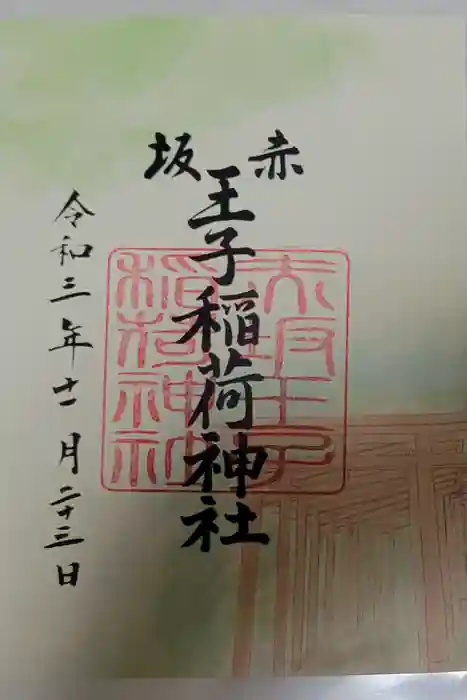 赤坂
王子稲荷神社
令和三年十一月二十三日
赤坂王子
稲荷神社